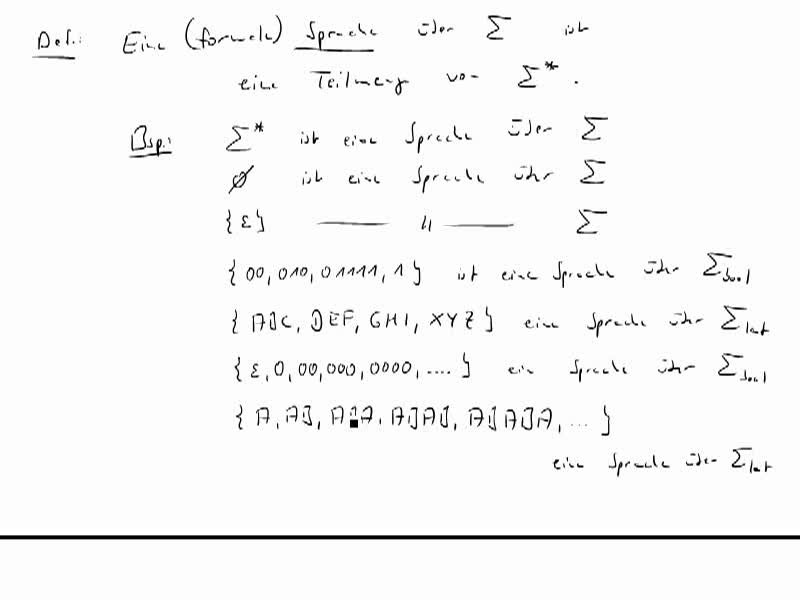 Def.: Eine (formale) Sprache über Σ ist
eine Teilmenge von Σ*.
Bsp.: Σ* ist eine Sprache über Σ
∅ ist eine Sprache über Σ
{ε} —— " —— Σ
{00, 010, 01111, 1} ist eine Sprache über Σbool
{ABC, DEF, GHI, XYZ} eine Sprache über Σlat
{ε, 0, 00, 000, 0000, ....} eine Sprache über Σbool
{A, AB, ABA, ABAB, ABABA, ...}
eine Sprache über Σlat